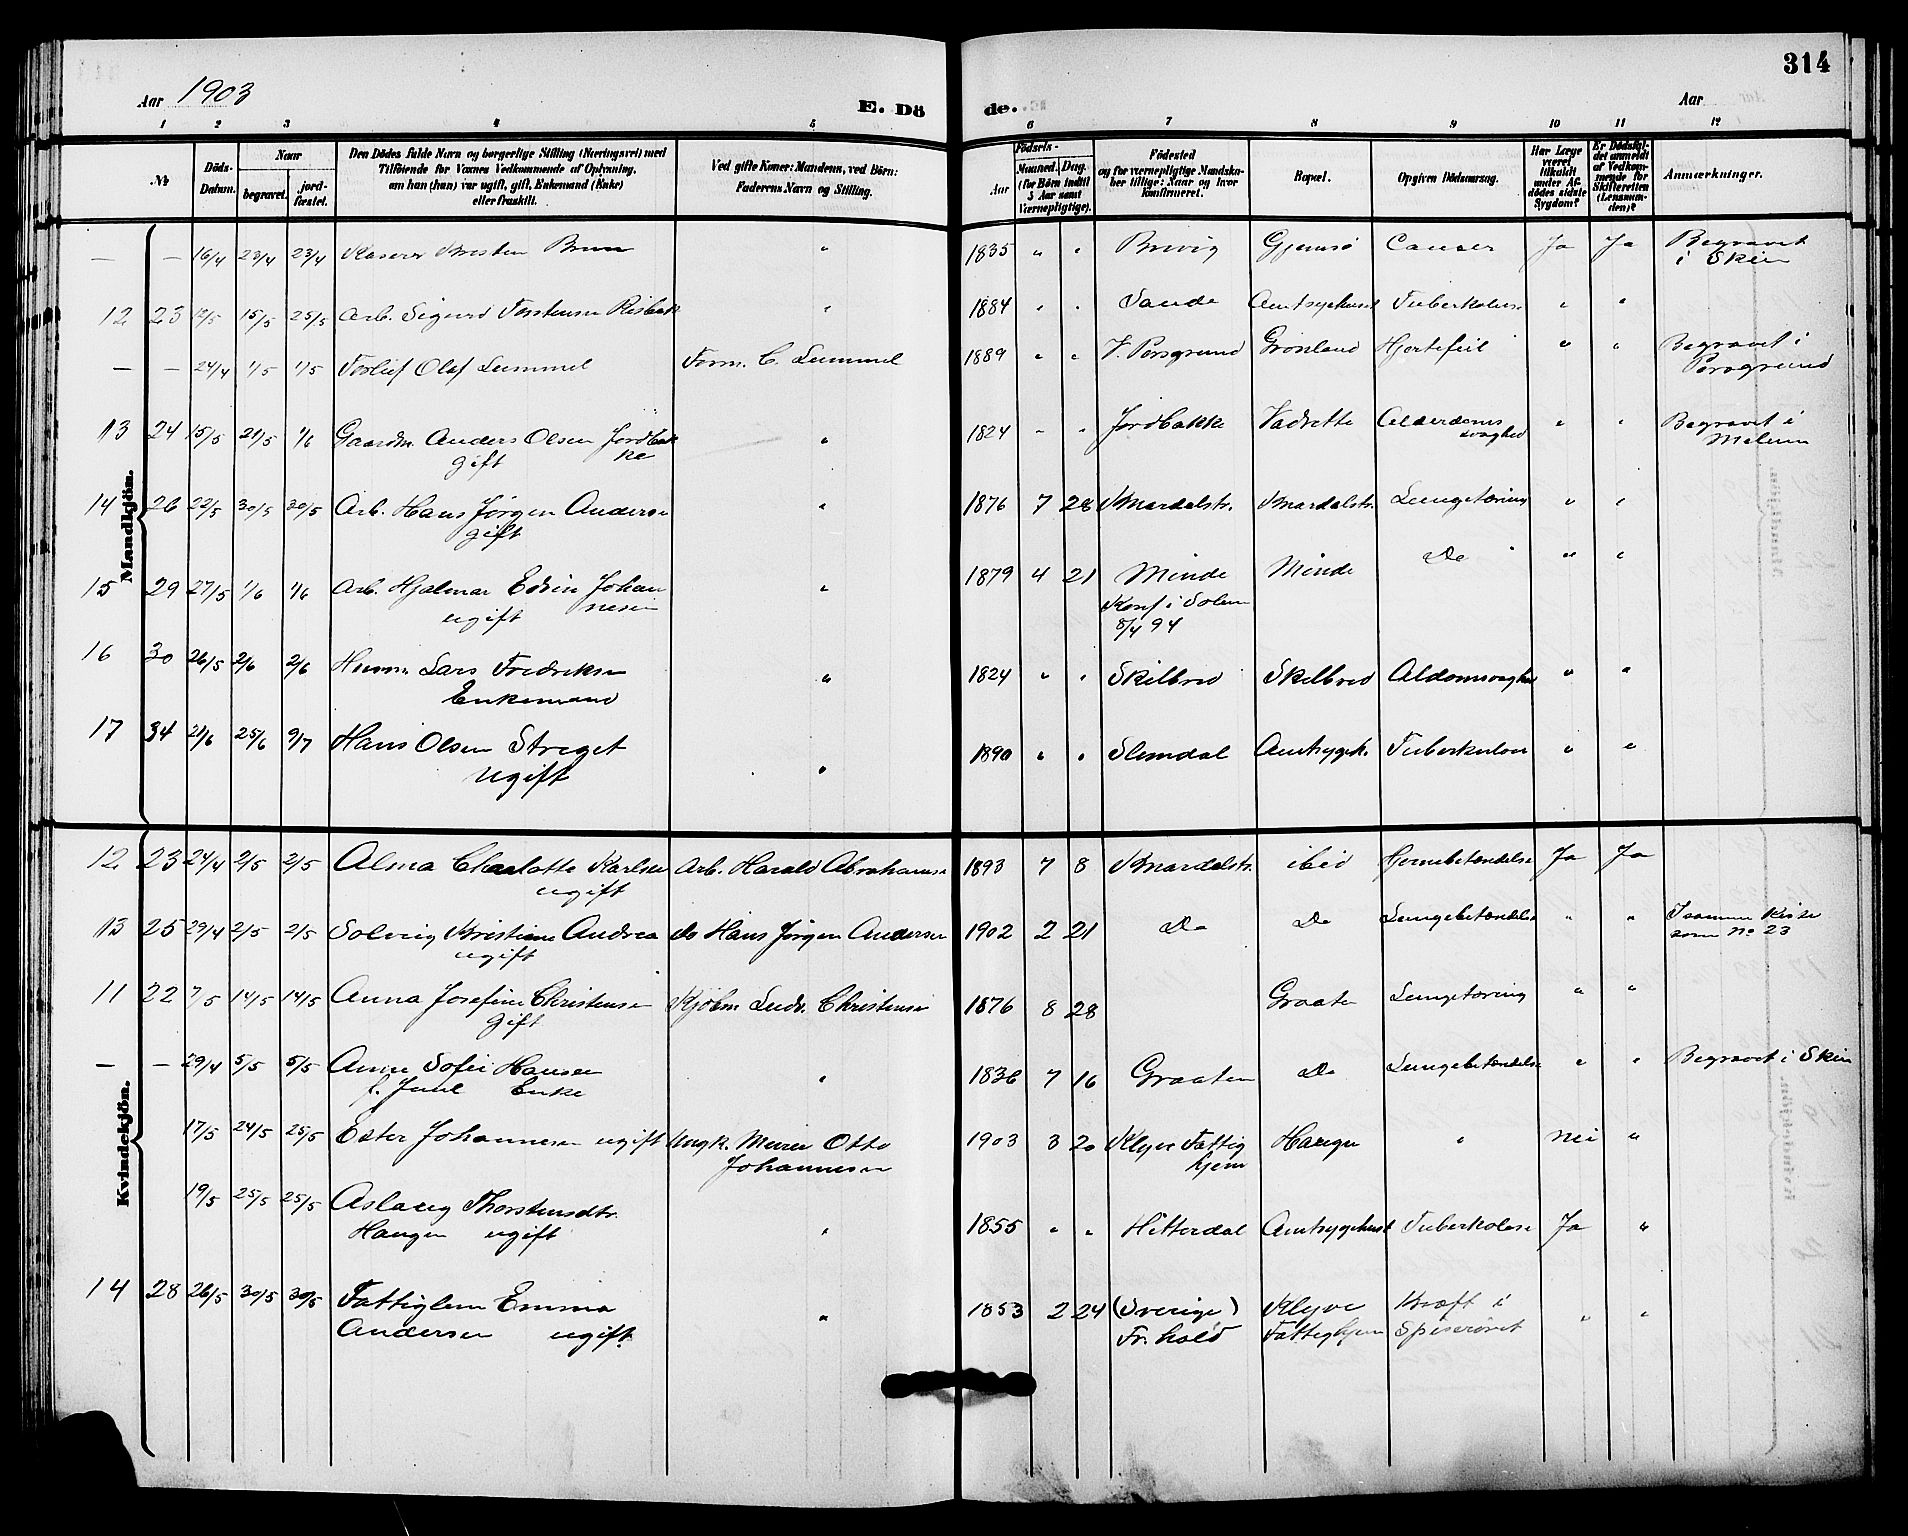 314
Aar 1903
E. Dö
de.
Aar
1 2 3 4 5 6 7 8 9 10 11 12
№
Döds-Datum.
Naar
begravet.
jord-fæstet.
Den Dödes fulde Navn og borgerlige Stilling (Næringsvei) med
Tilföiende for Voxnes Vedkommende af Oplysning,
om han (hun) var ugift, gift, Enkemand (Enke)
eller fraskilt.
Ved gifte Koner: Mandens, ved Börn:
Faderens Navn og Stilling.
Födsels-
Aar
Maaned. Dag.
(for Börn indtil
5 Aar samt
Værnepligtige).
Födested
og for værnepligtige Mandska-
ber tillige: Naar og hvor
konfirmeret.
Bopæl.
Opgiven Dödsaarsag.
Har Læge
været
tilkaldt
under Af-
dödes sidste
Sygdom?
Er Dödsfal-
det anmeldt
af Vedkom-
mende for
Skifteretten
(Lensman-
den)?
Anmærkninger.
Mandkjön.
— — 16/4 23/4 23/4 Kasserer Kristen Brun " 1835 " " Brevig Gjemsø Cancer Ja Ja Begravet
i Skien
12 23 12/5 15/5 25/5 Arb. Sigurd Torstensen Risbak " 1884 " " Sande Amtsygehuset Tuberkolose " "
— — 24/4 1/5 1/5 Torlief Olaf Lummel Form. C. Lummel 1889 " " V. Porsgrund Grönland Hjertefeil " " Begravet i
Porsgrund
13 24 15/5 21/5 1/6 Gaardm Anders Olsen Jordbak
ke
gift " 1824 " " Jordbakke Vadrette Alderdoms
svaghed " " Begravet i
Melum
14 26 22/5 30/5 30/5 Arb. Hans Jørgen Andersen
gift " 1876 7 28 Knardalstr. Knardalstr. Lungetæring " "
15 29 27/5 1/6 1/6 Arb. Hjalmar Edvin Johan
nesen
ugift " 1879 4 21 Minde Minde Do " "
Konf i Solum
8/4 94
16 30 26/5 2/6 2/6 Husm. Lars Fredriksen
Enkemand " 1824 " " Skilbred Skilbred Aldomsvaghed " "
17 34 21/6 25/6 9/7 Hans Olsen Straget
Ugift " 1890 " " Slemdal Amtsygeh. Tuberkulose " "
Kvindekjön.
12 23 24/4 2/5 2/5 Alma Charlotte Karlsen
ugift Arb. Harald Abrahamsen 1893 7 8 Knardalstr. ibid Hjernebetændelse Ja Ja
13 25 29/4 2/5 2/5 Solveig Kristiane Andrea
ugift do Hans Jørgen Andersen 1902 2 21 Do Do Lungebetændelse " " I samme Kiste
som No 23
11 22 7/5 14/5 14/5 Anna Josefine Christensen
gift Kjøbm Ludv. Christensen 1876 8 28 Graaten Lungetæring " "
— — 29/4 5/5 5/5 Anne Sofie Hansen
f. Juul Enke " 1836 7 16 Graaten Do Lungebetændelse " " Begravet i Skien
17/5 24/5 25/5 Ester Johannesen ugift Ungk. Murer Otto
Johannesen 1903 3 20 Klyve Fattig
hjem Haugen " nei "
19/5 25/5 25/5 Aslaug Thorstensdtr.
Haugen ugift " 1855 " " Hitterdal Amtsygehuset Tuberkolose Ja "
14 28 26/5 30/5 30/5 Fattiglem Emma
Andersen ugift. " 1853 2 24 (Sverige)
Fr.hald Klyve
Fattighjem Kræft i
Spiserøret " "